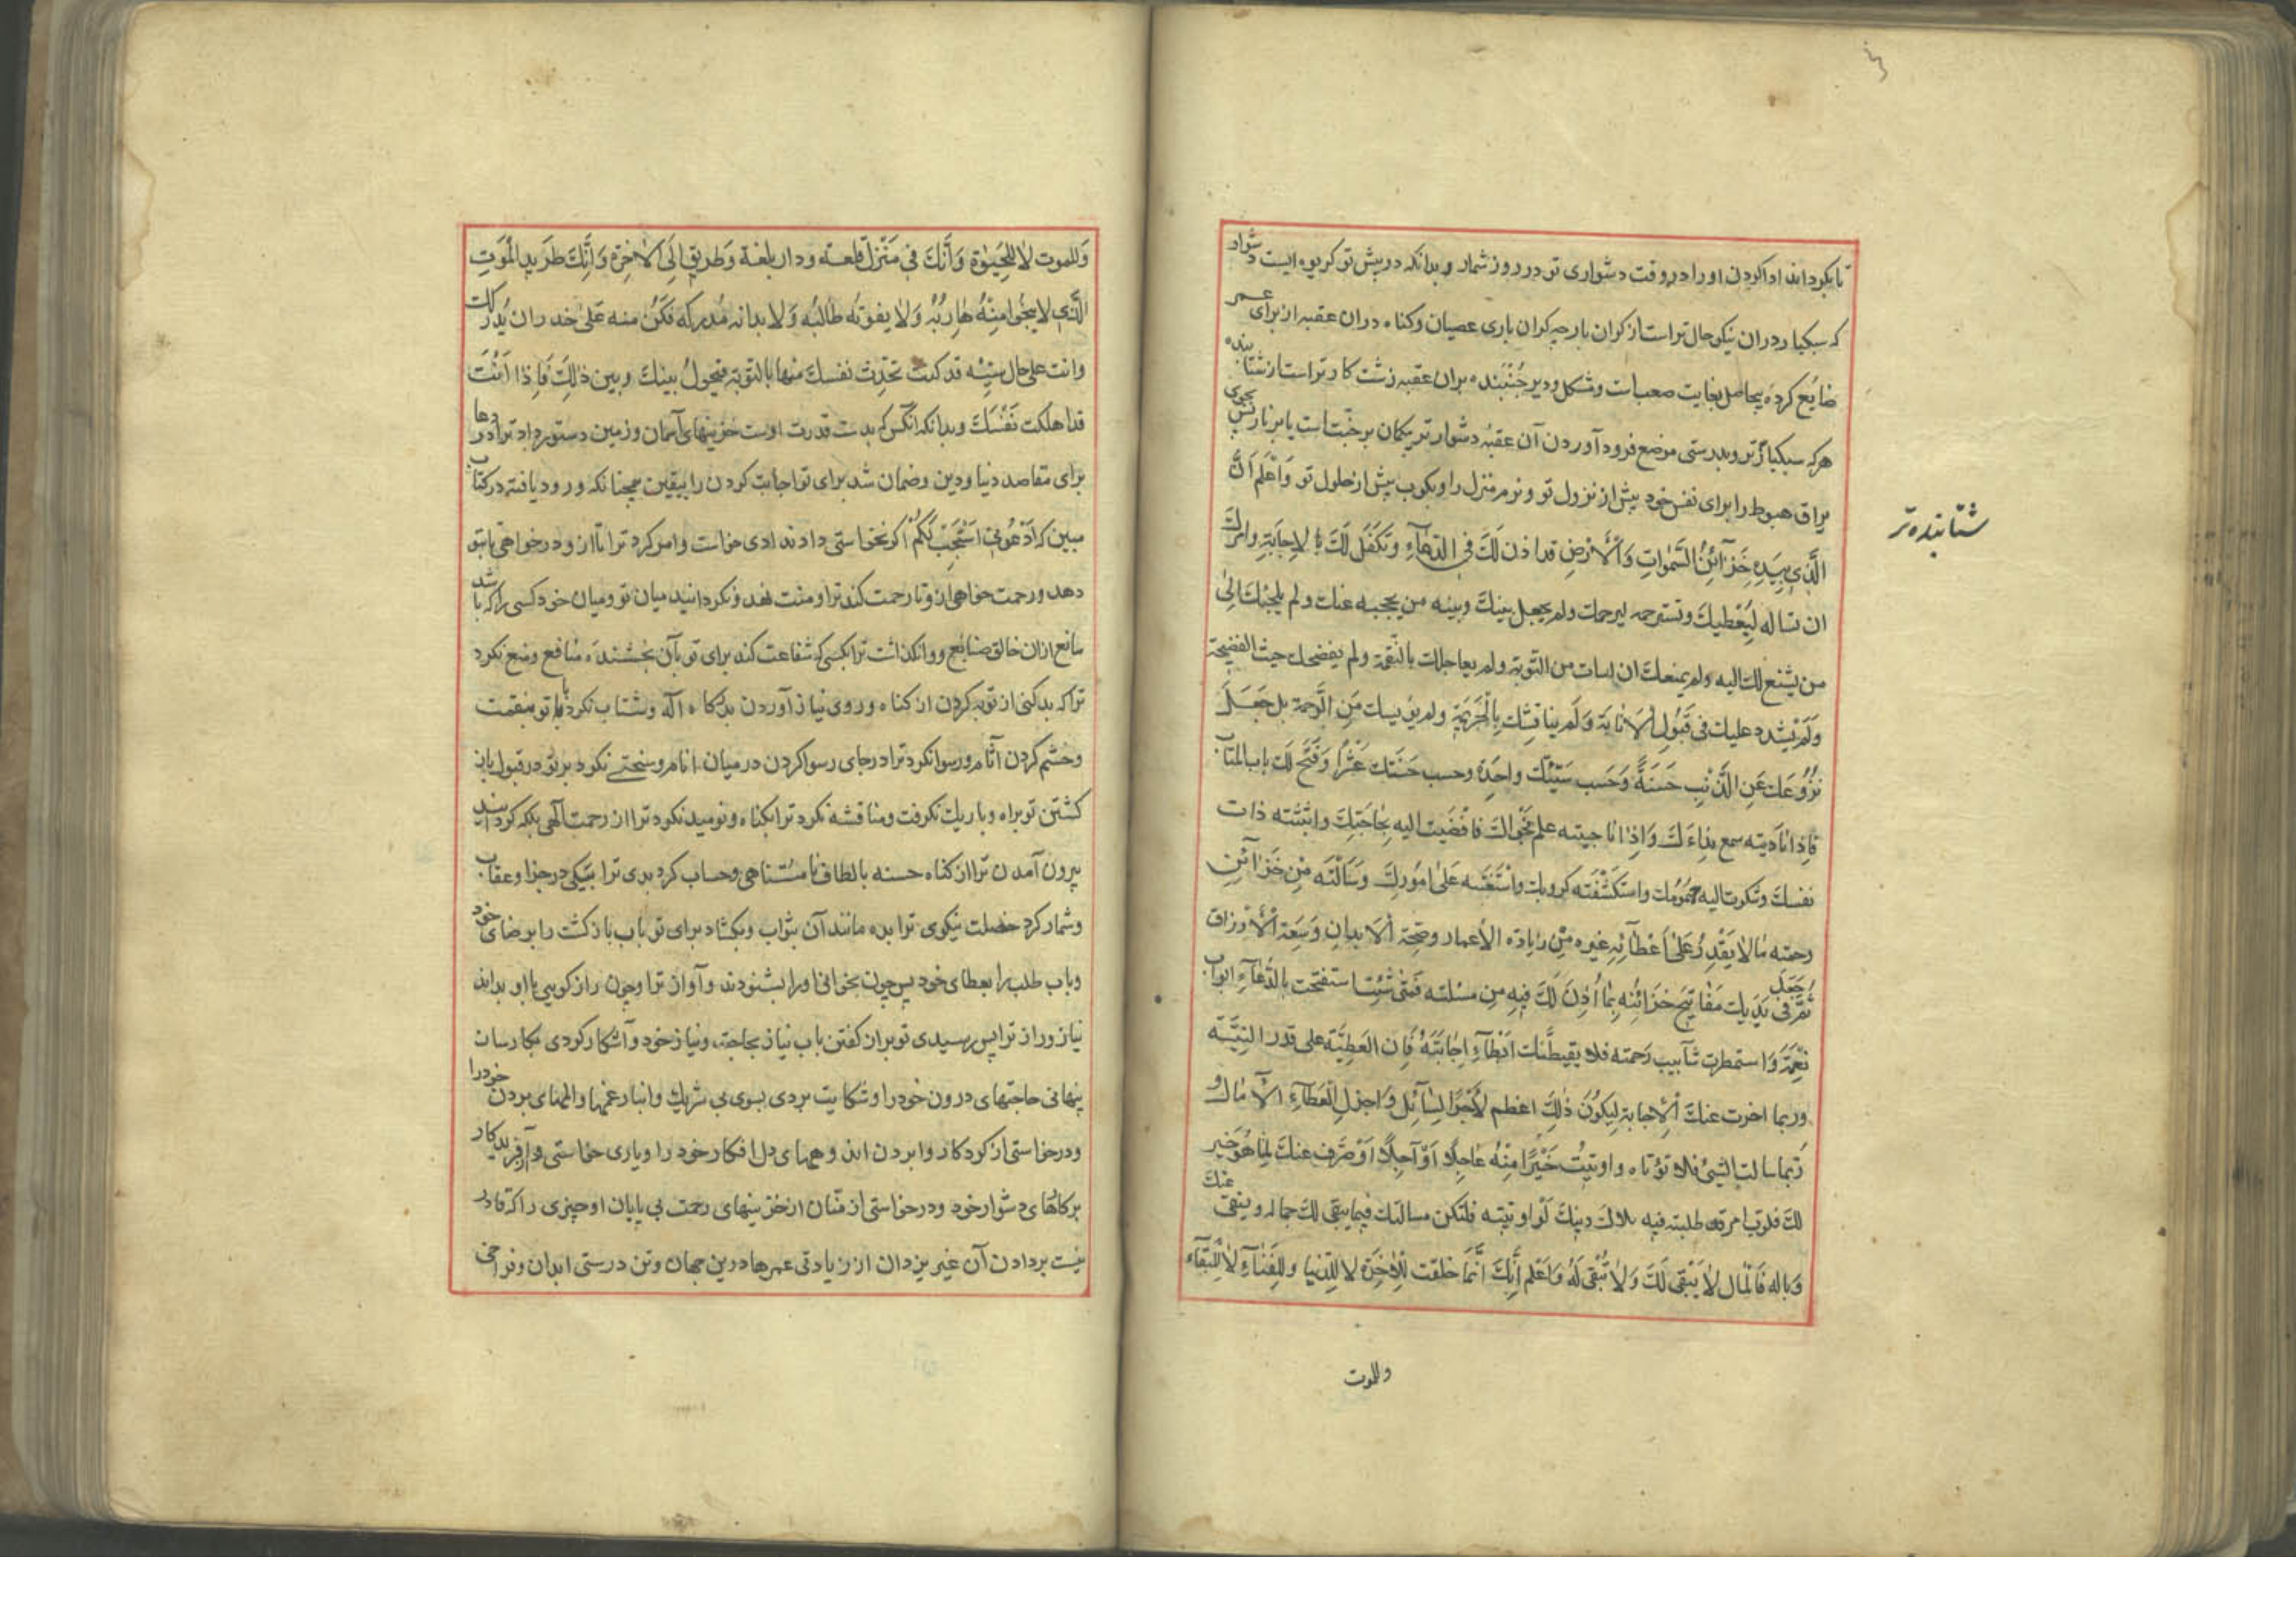 تا بگرداند ادا کردن او را در وقت دشواری تو در روز شمار و بدانکه در پیش تو کریوه ایست دشوار
که سبکبار در آن نیکو حال تر است از کران بار چه کران باری عصیان و کناه در آن عقبه از برای عمر
ضایع کرده بیحاصل بغایت صعب است و مشکل و دیر جنبنده بران عقبه زشت کار تر است از شتابنده
هر که سبکبارتر و بدرستی موضع فرود آوردن آن عقبه دشوار تر بیکمان بر جنت است یا بر نار پس بجوی
یراق هبوط را برای نفس خود پیش از نزول تو و نرم منزل را و بکوب پیش از حلول تو وَاعْلَم اَنَّ
الَّذِی بِیَدِهِ خَزَآئِنُ السَّمٰوات وَالْاَرْضِ قد اذن لَكَ فی الدّعآءِ وتکفّل لَكَ بالاِجابَةِ وامرك
ان تساله لِیُعْطیكَ وتسترحمه لیرحمك ولم یجعل بینكَ وبینه من یحجبه عنك ولم یلجئك اِلیٰ
من یشفع لك الیه ولم یمنعك ان اسات من التوبة ولم یعاجلك بالنّقمة ولم یفضحك حیث الفضیحة
وَلَم یشدد علیك فی قَبُولِ الْاَنابَة وَلَم یناقشك بِالْجَریمَةِ ولم یؤیسك مِنَ الرَّحمة بل جَعَلَ
نزُوعَكَ عَنِ الذَّنبِ حَسَنَةً وَحَسَب سَیّئتك واحِدَة وحسب حَسَنَتك عَشْرًا وَفَتَحَ لك باب المتاب
فَاِذا نادَیته سمع نداءَكَ وَاِذا ناجیته علم نجواكَ فافْضَیت الیه بِحاجَتِكَ وابثثته ذات
نفسك وشکوت الیه هُمُومَك واستکشفته کروبك واسْتَعَنته عَلیٰ امُورِكَ وَسَاَلْته مِنْ خَزآئِنِ
رحمته مٰا لا یَقْدِرُ عَلیٰ اَعْطآئِهِ غیره مِنْ زیادة الاعمار وصِحّة الابدان وَسِعَة الْاَرزاق
ثمّ جَعَلَ فی یَدَیك مَفاتیح خَزائنِه بِما اُذِنَ لَكَ فیهِ مِن مسئلته فَمَتیٰ شِئت استفتحت بالدُّعآءِ ابواب
نِعْمَته وَاستمطرت شآبیب رَحمته فلا یقنطنّك اَبْطآءُ اِجابَتِه فَاِن العَطِیَّة علی قدر النیّة
وربما اخرت عنك الْاِجابة لِیکُونَ ذٰلِكَ اعظم لِاَجْر السّآئِل وَاجزل لِعَطآءِ الآمال و
رُبما سالت الشئ فلا تؤتاه واوتیتَ خَیْرًا مِنْهُ عٰاجِلًا اَوْ آجِلًا اوْ صُرِف عنكَ لِمٰا هُوَ خَیر
لك فلرب امر قد طلبته فیه هلاك دینك لَو اوتیته فلتکن مسالتك فیما یبقی لك جماله وینفی عنك
وباله فَالْمال لا یَبْقی لَكَ وَلا تَبْقی لَهُ وَاعْلم اَنّكَ اَنّما خلقت لِلْاخِرَة لا لِلدّنیا وللفنآءِ لا لِلبَقآءِ
وللموت
شتابنده تر
وَللموت لا لِلحَیٰوة وَاَنّكَ فی مَنْزِل قلعة ودار بلغة وَطریق اِلَی الاٰخِرَة وَاَنَّكَ طَرید الْمَوتِ
الَّذی لا ینجُوا مِنْهُ هٰاربُهُ وَلا یفوتُه طالبُه وَلا بد انه مُدرکه فَکُن منه عَلیٰ حذر ان یُدرکك
وانت علی حال سیّئة قد کنت تحدّث نفسك منها بالتوبة فیَحُولُ بینكَ وبین ذٰلِكَ فَاِذا اَنْتَ
قد اهلکت نَفْسَكَ و بدانکه آنکس که بدست قدرت اوست خزینهای آسمان و زمین دستور داد ترا در دعا
برای مقاصد دنیا و دین و ضمان شد برای تو اجابت کردن را بیقین همچنانکه ورود یافته در کتاب
مبین که اُدْعُونی اَسْتَجِبْ لَکُمْ اگر نخواستی دادن ندادی خواست و امر کرد ترا تا از و درخواهی تا بتو
دهد و رحمت خواهی از و تا رحمت کند ترا و منت نهد و نکردانید میان تو و میان خود کسی را که باشد
مانع ازان خالق صنایع و وانکذاشت ترا بکسی که شفاعت کند برای تو بآن بخشنده منافع و منع نکرد
ترا که بد کنی از توبه کردن از کناه و روی نیاز آوردن بدرکاه اله و شتاب نکرد با تو بنقمت
و خشم کردن آثام و رسوا نکرد ترا در جای رسوا کردن در میان انام و سختی نکرد بر تو در قبول باز
کشتن تو براه و باریك نکرفت و مناقشه نکرد ترا بکناه و نومید نکرد ترا از رحمت الهی بلکه کردانید
بیرون آمدن ترا از کناه حسنه بالطاف نامتناهی و حساب کرد بدی ترا بیکی در جزا و عقاب
و شمار کرد خصلت نیکوی ترا بده مانند آن بثواب و بکشاد برای تو باب بازکشت را برضای خود
و باب طلب را بعطای خود پس چون بخوانی او را بشنود ند و آواز ترا و چون راز کویی با او بداند
نیاز و راز ترا پس رسیدی تو براز کفتن باب نیاز بحاجة و نیاز خود و آشکار کردی بکارسان
پنهانی حاجتهای درون خود را و شکایت بردی بسوی بی شریك و انبار غمها و المهای بردن خود را
و درخواستی از کردکار وا بردن اندوههای دل افکار خود را و یاری خواستی از آفریدکار
بر کارهای دشوار خود و درخواستی از منان از خزینهای رحمت بی پایان او چیزی را که قادر
نیست بر دادن آن غیر یزدان از زیادتی عمرها درین جهان و تن درستی ابدان و فراخی